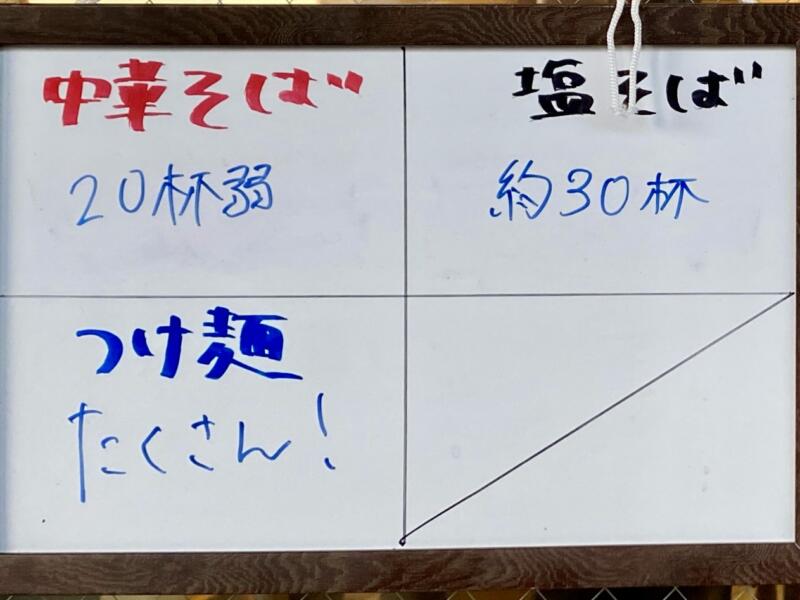 中華そば
20杯弱
塩そば
約30杯
つけ麺
たくさん!